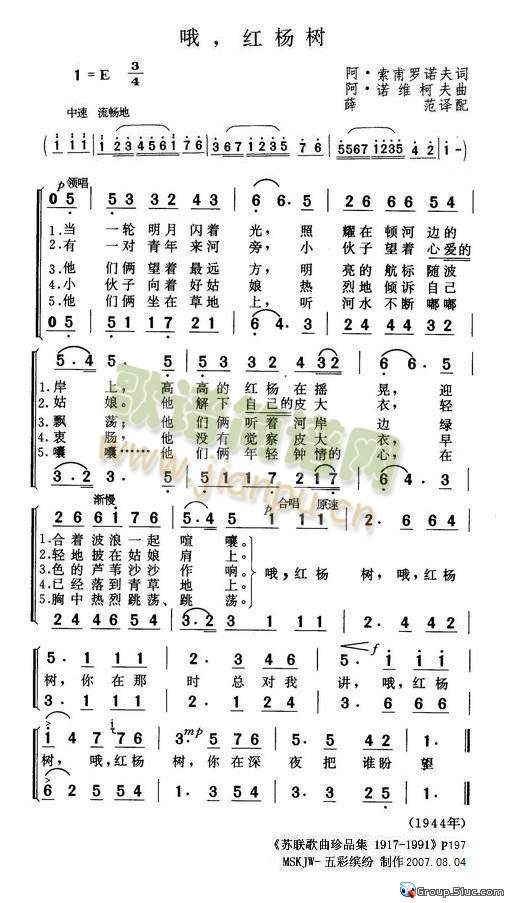 哦，红杨树
1=E 3/4
阿·索甫罗诺夫词
阿·诺维柯夫曲
薛范译配
中速 流畅地
p 领唱
0 5 5 3 3 2 4 3 6 6· 5 6 6 2 2 5 4
1.当一轮明月闪着光，照耀在顿河边的
2.有一对青年来河旁，小伙子望着心爱的
3.他们俩望着最远方，明亮的航标随波
4.小伙子向着好姑娘热烈地倾诉自己
5.他们俩坐在草地上，听河水不断嘟嘟
0 5 5 1 1 7 2 1 6 4· 3 4 4 6 6 3 2
1.岸上，高高的红杨在摇晃，迎
2.姑娘。他解下自己的皮大衣，轻
3.飘荡；他们俩听着河岸边绿
4.衷肠，他没有觉察皮大衣，早
5.嚷嚷……他们俩年轻钟情的心，在
渐慢 p 合唱 原速
2 6 6 1 7 6 5·4 5 1 1 1 2· 6 4 4
1.合着波浪一起喧嚷。
2.轻地披在姑娘肩上。
3.色的芦苇沙沙作响。
4.已经落到青草地上。
5.胸中热烈跳荡、跳荡。
哦，红杨树，哦，红杨
2 4 4 6 5 4 3·2 3 1 1 1 2· 4 2 2
f
5· 1 1 1 2· 3 4 6 5· 1 1 1
树，你在那时总对我讲，哦，红杨
3· 1 1 1
mp
1 4 7 7 6 3· 5 7 6 5 4 0 2 1·
树，哦，红杨树，你在深夜把谁盼望
6 2 5 5
(1944年)
《苏联歌曲珍品集 1917-1991》P197
MSKJW-五彩缤纷 制作2007.08.04
歌谱简谱网
www.jianpu.cn
Group.5luc.com